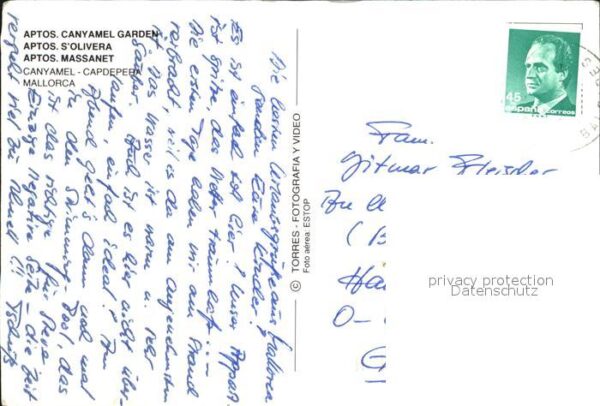 APTOS. CANYAMEL GARDEN
APTOS. S'OLIVERA
APTOS. MASSANET
CANYAMEL - CAPDEPERA
MALLORCA
Die besten Urlaubsgrüße aus Mallorca
senden Eure Kinder!
Es ist einfach toll hier! Unser Appar.
ist spitze, das Wetter traumhaft. --
Die ersten Tage haben wir am Strand
verbracht, weil es da am angenehmsten
ist. Das Wasser ist warm u. sehr
sauber. Auch ist es hier nicht über-
laufen, einfach ideal! Am
Abend geht's dann noch mal
in den Swimming-Pool, das
ist das richtige für
Einzige negative Seite - die Zeit
vergeht viel zu schnell!! Tschüß
© TORRES - FOTOGRAFIA Y VIDEO
Foto aérea: ESTOP
45
españa correos
BALEARES
Fam.
Gitmar
(B
Ha
O-
G
privacy protection
Datenschutz